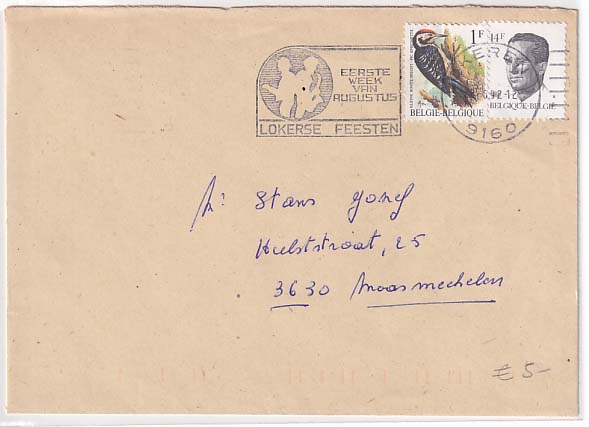 EERSTE
WEEK
VAN
AUGUSTUS
LOKERSE FEESTEN
1F
BELGIE-BELGIQUE
14F
BELGIQUE-BELGIË
9160
Stans Jozef
3630 Maasmechelen
€ 5-